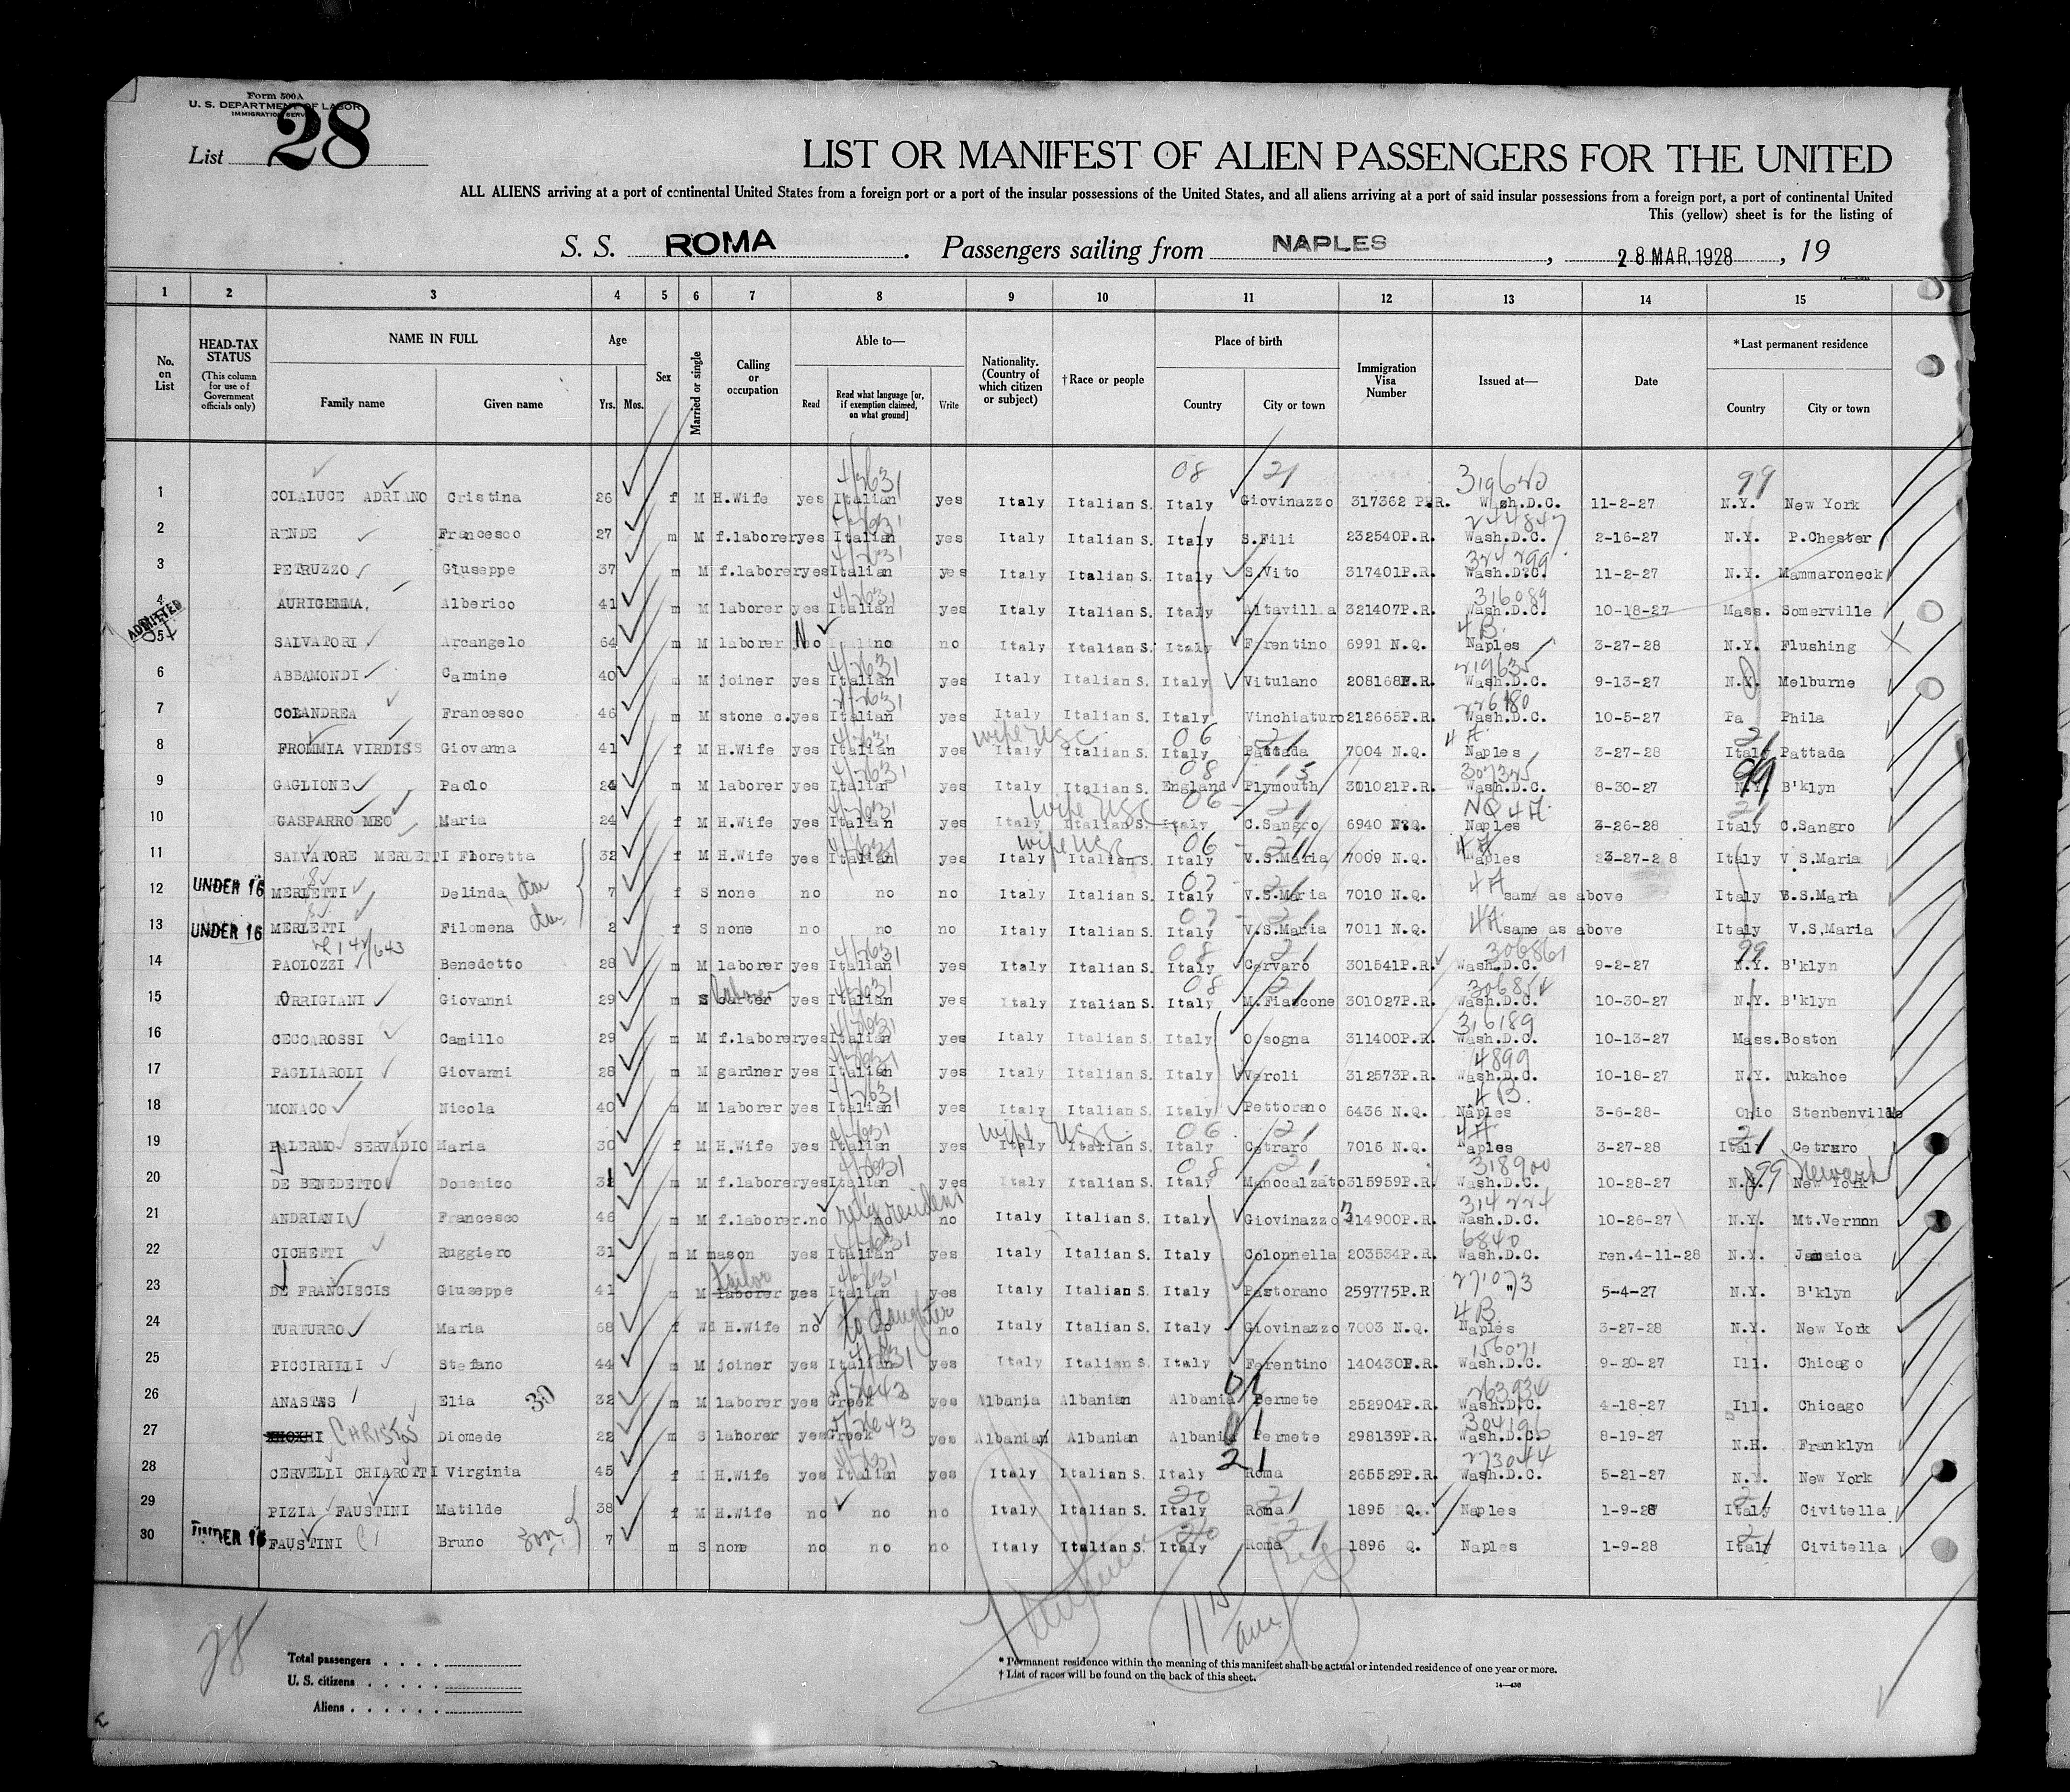 Form 500A
U. S. DEPARTMENT OF LABOR
IMMIGRATION SERV
List 28
LIST OR MANIFEST OF ALIEN PASSENGERS FOR THE UNITED
ALL ALIENS arriving at a port of continental United States from a foreign port or a port of the insular possessions of the United States, and all aliens arriving at a port of said insular possessions from a foreign port, a port of continental United
This (yellow) sheet is for the listing of
S. S. ROMA. Passengers sailing from NAPLES, 28 MAR. 1928, 19
1 2 3 4 5 6 7 8 9 10 11 12 13 14 15
No. on List
HEAD-TAX STATUS
(This column for use of Government officials only)
NAME IN FULL
Family name Given name
Age
Yrs. Mos.
Sex
Married or single
Calling or occupation
Able to—
Read Read what language [or, if exemption claimed, on what ground] Write
Nationality. (Country of which citizen or subject)
†Race or people
Place of birth
Country City or town
Immigration Visa Number
Issued at—
Date
*Last permanent residence
Country City or town
08 21 319620 99
1 COLALUCE ADRIANO Cristina 26 f M H.Wife yes Italian yes Italy Italian S. Italy Giovinazzo 317362 P.R. Wash.D.C. 11-2-27 N.Y. New York
244847
2 RENDE Francesco 27 m M f.laborer yes Italian yes Italy Italian S. Italy S.Fili 232540P.R. Wash.D.C. 2-16-27 N.Y. P.Chester
324299
3 PETRUZZO Giuseppe 37 m M f.laborer yes Italian yes Italy Italian S. Italy S.Vito 317401P.R. Wash.D.C. 11-2-27 N.Y. Mammaroneck
316089
4 AURIGEMMA, Alberico 41 m M laborer yes Italian yes Italy Italian S. Italy Altavilla 321407P.R. Wash.D.C. 10-18-27 Mass. Somerville
ADMITTED 4B
5 SALVATORI Arcangelo 64 m M laborer No no no Italy Italian S. Italy Ferentino 6991 N.Q. Naples 3-27-28 N.Y. Flushing
219635
6 ABBAMONDI Carmine 40 m M joiner yes Italian yes Italy Italian S. Italy Vitulano 208168P.R. Wash.D.C. 9-13-27 N.Y. Melburne
226180
7 COLANDREA Francesco 46 m M stone c. yes Italian yes Italy Italian S. Italy Vinchiaturo 212665P.R. Wash.D.C. 10-5-27 Pa Phila
wife USC 06 21 4A 21
8 FROMMIA VIRDIS Giovanna 41 f M H.Wife yes Italian yes Italy Italian S. Italy Pattada 7004 N.Q. Naples 3-27-28 Italy Pattada
08 15 307325 99
9 GAGLIONE Paolo 24 m M laborer yes Italian yes Italy Italian S. England Plymouth 301021P.R. Wash.D.C. 8-30-27 N.Y. B'klyn
wife USC 06 21 NQ 4A 21
10 GASPARRO MEO Maria 24 f M H.Wife yes Italian yes Italy Italian S. Italy C.Sangro 6940 N.Q. Naples 3-26-28 Italy C.Sangro
wife USC 06 21 4A
11 SALVATORE MERLETTI Floretta 32 f M H.Wife yes Italian yes Italy Italian S. Italy V.S.Maria 7009 N.Q. Naples 3-27-28 Italy V S.Maria
07 21
12 UNDER 16 MERLETTI Delinda dau 7 f S none no no no Italy Italian S. Italy V.S.Maria 7010 N.Q. 4A same as above Italy V.S.Maria
07 21
13 UNDER 16 MERLETTI Filomena dau 2 f S none no no no Italy Italian S. Italy V.S.Maria 7011 N.Q. 4A same as above Italy V.S,Maria
08 21 306861 99
14 PAOLOZZI Benedetto 28 m M laborer yes Italian yes Italy Italian S. Italy Cervaro 301541P.R. Wash.D.C. 9-2-27 N.Y. B'klyn
laborer 08 21 306854
15 TORRIGIANI Giovanni 29 m S carter yes Italian yes Italy Italian S. Italy M.Fiascone 301027P.R. Wash.D.C. 10-30-27 N.Y. B'klyn
316189
16 CECCAROSSI Camillo 29 m M f.laborer yes Italian yes Italy Italian S. Italy O sogna 311400P.R. Wash.D.C. 10-13-27 Mass. Boston
4899
17 PAGLIAROLI Giovanni 28 m M gardner yes Italian yes Italy Italian S. Italy Veroli 312573P.R. Wash.D.C. 10-18-27 N.Y. Tukahoe
4B.
18 MONACO Nicola 40 m M laborer yes Italian yes Italy Italian S. Italy Pettorano 6436 N.Q. Naples 3-6-28- Ohio Stenbenville
wife USC 06 21 4A 21
19 PALERMO SERVADIO Maria 30 f M H.Wife yes Italian yes Italy Italian S. Italy Cetraro 7016 N.Q. Naples 3-27-28 Italy Cetraro
08 21 318900 99 Newark
20 DE BENEDETTO Domenico 32 m M f.laborer yes Italian yes Italy Italian S. Italy Manocalzato 315959P.R. Wash.D.C. 10-28-27 N.Y. New York
retg resident 314224
21 ANDRIANI Francesco 46 m M f.laborer. no no no Italy Italian S. Italy Giovinazzo 314900P.R. Wash.D.C. 10-26-27 N.Y. Mt.Vernon
6840
22 CICHETTI Ruggiero 31 m M mason yes Italian yes Italy Italian S. Italy Colonnella 203534P.R. Wash.D.C. ren.4-11-28 N.Y. Jamaica
tailor 271073
23 DE FRANCISCIS Giuseppe 41 m M laborer yes Italian yes Italy Italian S. Italy Pastorano 259775P.R " 5-4-27 N.Y. B'klyn
to daughter 4B
24 TURTURRO Maria 68 f Wd H.Wife no no no Italy Italian S. Italy Giovinazzo 7003 N.Q. Naples 3-27-28 N.Y. New York
156071
25 PICCIRILLI Stefano 44 m M joiner yes Italian yes Italy Italian S. Italy Ferentino 140430P.R. Wash.D.C. 9-20-27 Ill. Chicago
01 263934
26 ANASTES Elia 30 32 m M laborer yes Greek yes Albania Albanian Albania Permete 252904P.R. Wash.D.C. 4-18-27 Ill. Chicago
01 304196
27 CHRISTOS Diomede 22 m S laborer yes Greek yes Albanian Albanian Albania Permete 298139P.R. Wash.D.C. 8-19-27 N.H. Franklyn
21 273044
28 CERVELLI CHIAROTTI Virginia 45 f M H.Wife yes Italian yes Italy Italian S. Italy Roma 265529P.R. Wash.D.C. 5-21-27 N.Y. New York
20 21 21
29 PIZIA FAUSTINI Matilde 38 f M H.Wife no no no Italy Italian S. Italy Roma 1895 Q. Naples 1-9-28 Italy Civitella
20 21 21
30 UNDER 16 FAUSTINI Bruno son 7 m S none no no no Italy Italian S. Italy Roma 1896 Q. Naples 1-9-28 Italy Civitella
28
11 15 am
Total passengers . . . .
U. S. citizens . . . . .
Aliens . . . . . .
* Permanent residence within the meaning of this manifest shall be actual or intended residence of one year or more.
† List of races will be found on the back of this sheet.
14—430